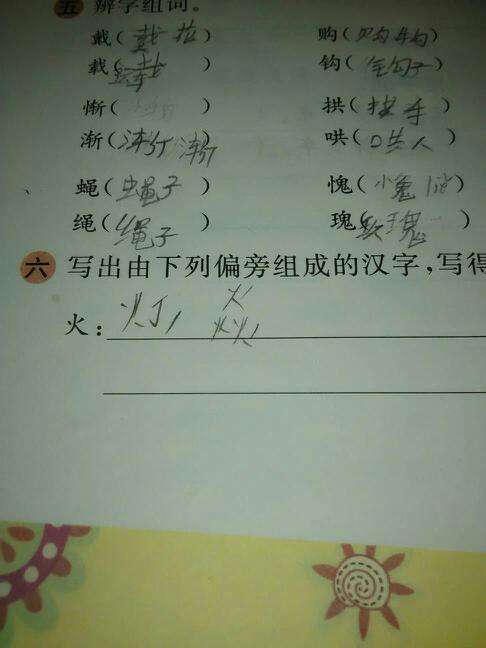 五 辨字组词。
戴(戴拉) 购(购物)
载(载) 钩(钩子)
惭( ) 拱(拱手)
渐(渐渐) 哄(哄人)
蝇(蝇子) 愧(愧)
绳(绳子) 瑰(玫瑰)
六 写出由下列偏旁组成的汉字,写得
火: 灯, 焱,